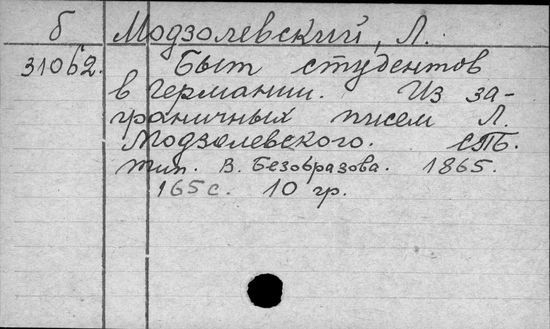 б Модзолевский, Л.
31062. Быт студентов
в Германии. Из за-
граничных писем Л.
Модзолевского. СПБ.
тип. В. Безобразова. 1865.
165 с. 10 гр.